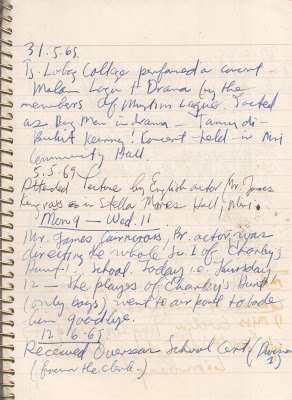 31.5.69.
Tg. Lobang College performed a concert -
Malam Lagu & Drama by the
members of Muslim League. I acted
as Big Man in drama - Janney di-
Bukit Kenny! Concert held in Miri
Community Hall.
5.5.69
Attended lecture by English actor Mr. James
Cairncross in Stella Mores Hall, Miri.
Mon 9 - Wed. 11
Mr. James Cairncross, Br. actor was
directing the whole Sc. 1 of Charley's
Aunt - in School. Today i.e. Thursday
12 - the players of Charley's Aunt
(only boys) went to air port to bade
him goodbye.
12.6.69
Received Overseas School Cert (Division
(from the clerk -) 1)